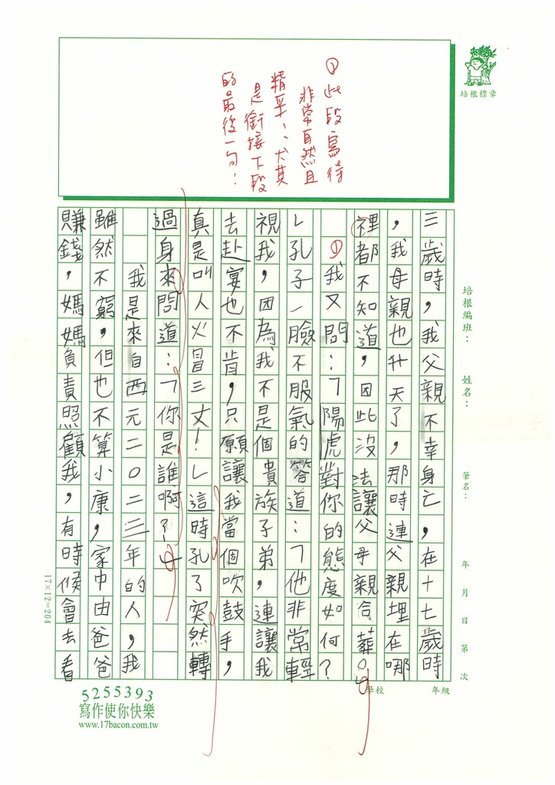 培根標章
①此段寫得
非常自然且
精采，尤其
是銜接下段
的最後一句：
培根編班：
姓名：
筆名：
年 月 日 第 次
三歲時，我父親不幸身亡，在十七歲時
，我母親也升天了，那時連父親埋在哪
裡都不知道，因此沒法讓父母親合葬。」
①我又問：「陽虎對你的態度如何？
」孔子一臉不服氣的答道：「他非常輕
視我，因為我不是個貴族子弟，連讓我
去赴宴也不肯，只願讓我當個吹鼓手，
真是叫人火冒三丈！」這時孔子突然轉
過身來問道：「你是誰啊？」
我是來自西元二○二三年的人，我
雖然不窮，但也不算小康，家中由爸爸
賺錢，媽媽負責照顧我，有時候會去看
17×12=204
學校
年級
5255393
寫作使你快樂
www.17bacon.com.tw